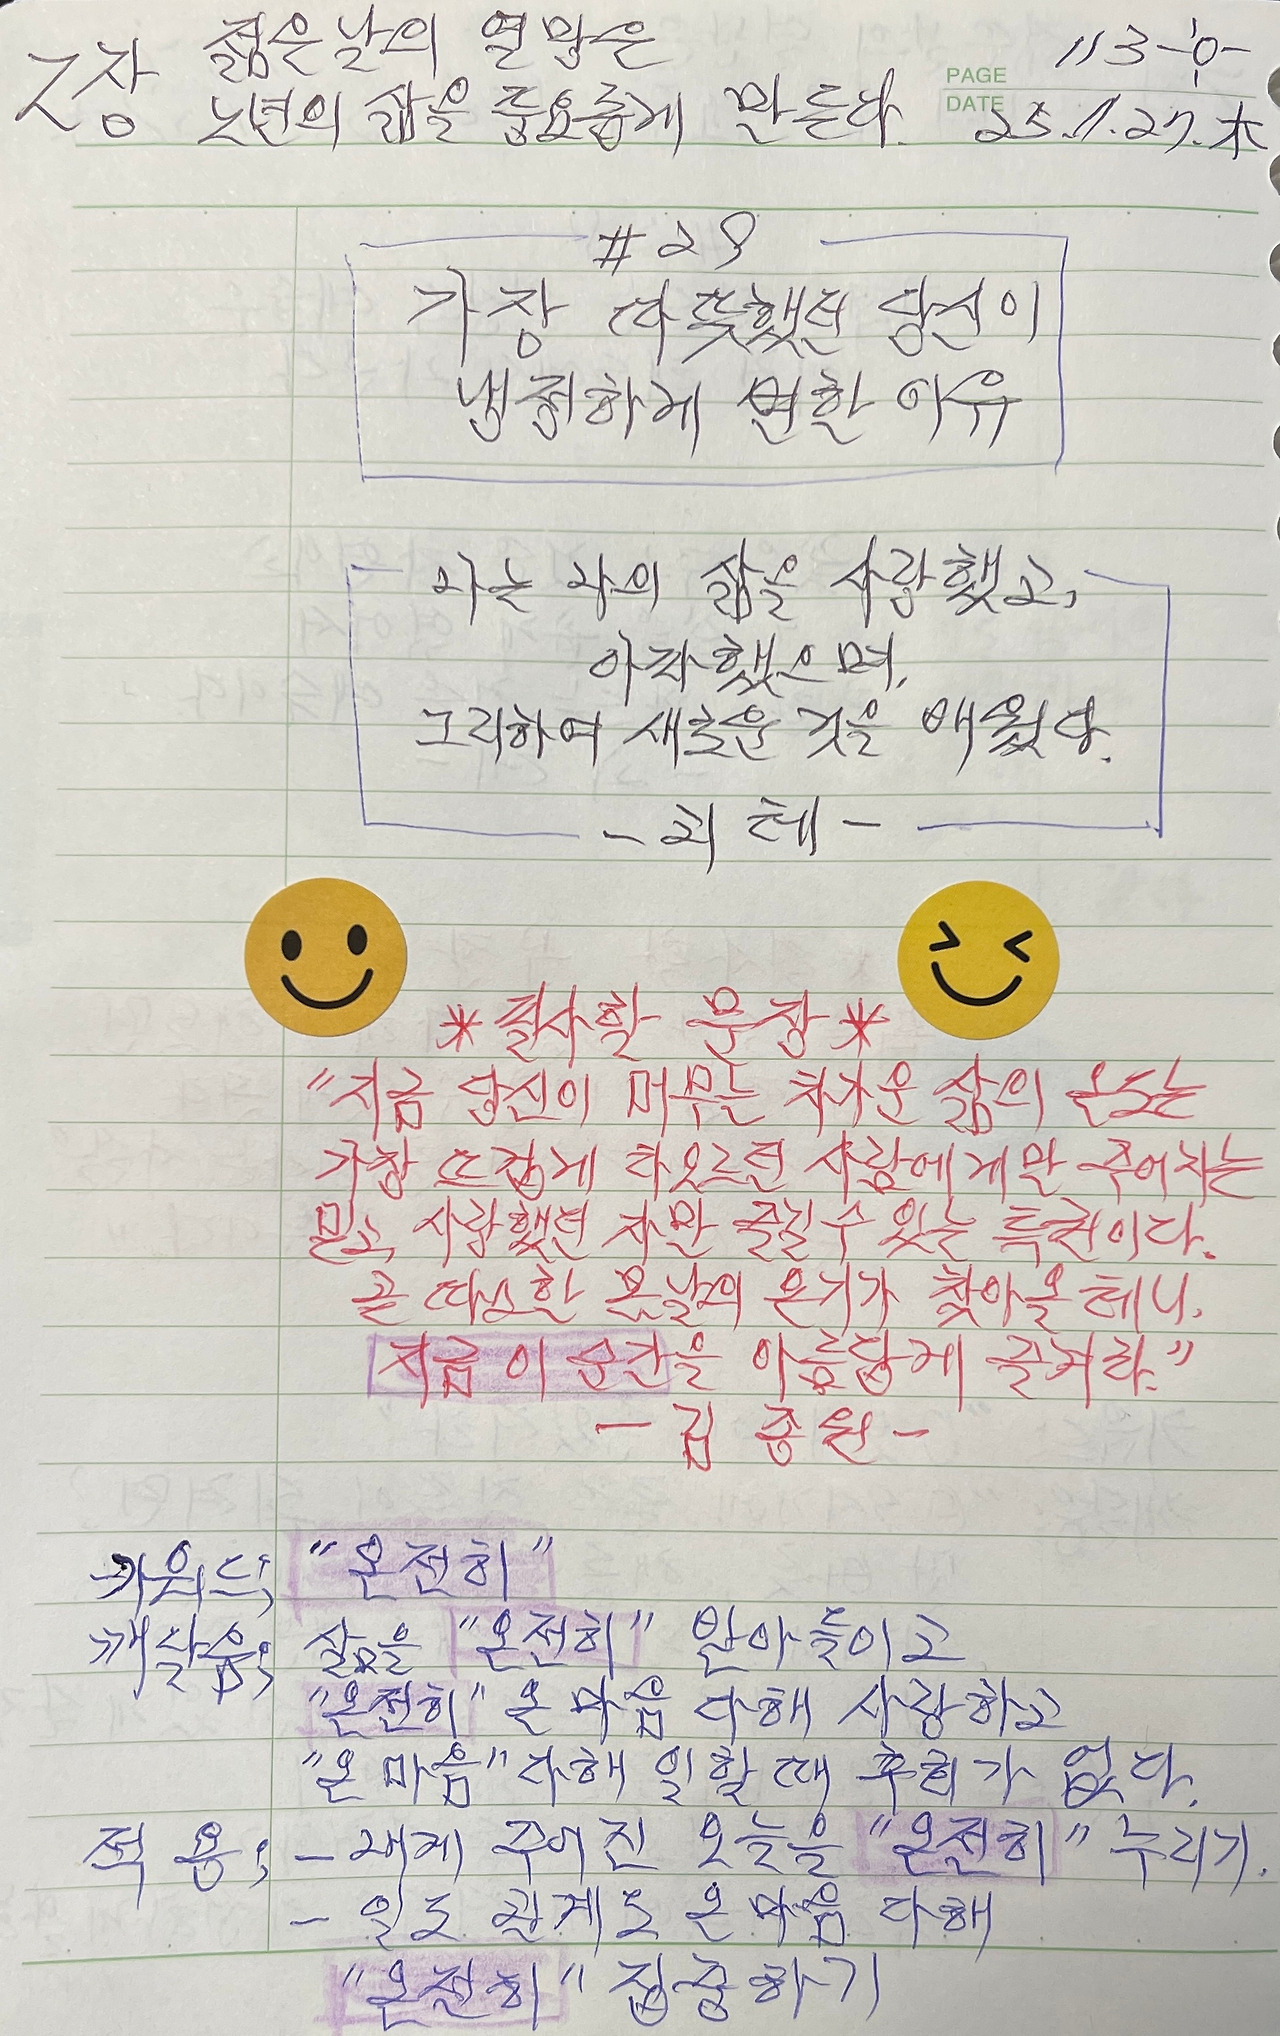 2장 젊은날의 열망은
노년의 삶을 풍요롭게 만든다.
113
PAGE
DATE 25.11.27.木
#29
가장 따뜻했던 당신이
냉정하게 변한 이유
나는 나의 삶을 사랑했고,
아파했으며,
그리하여 새로운 것을 배웠다.
- 괴테 -
*필사할 문장*
"지금 당신이 머무는 차가운 삶의 온도는
가장 뜨겁게 타오르던 사람에게만 주어지는
믿고, 사랑했던 자만 즐길 수 있는 특권이다.
곧 따스한 봄날의 온기가 찾아올 테니,
지금 이 순간을 아름답게 즐겨라."
- 김종원 -
키워드; "온전히"
깨달음; 삶을 "온전히" 받아들이고
"온전히" 온 마음 다해 사랑하고
"온 마음" 다해 일할 때 후회가 없다.
적용; - 내게 주어진 오늘을 "온전히" 누리기.
- 일도 관계도 온 마음 다해
"온전히" 집중하기